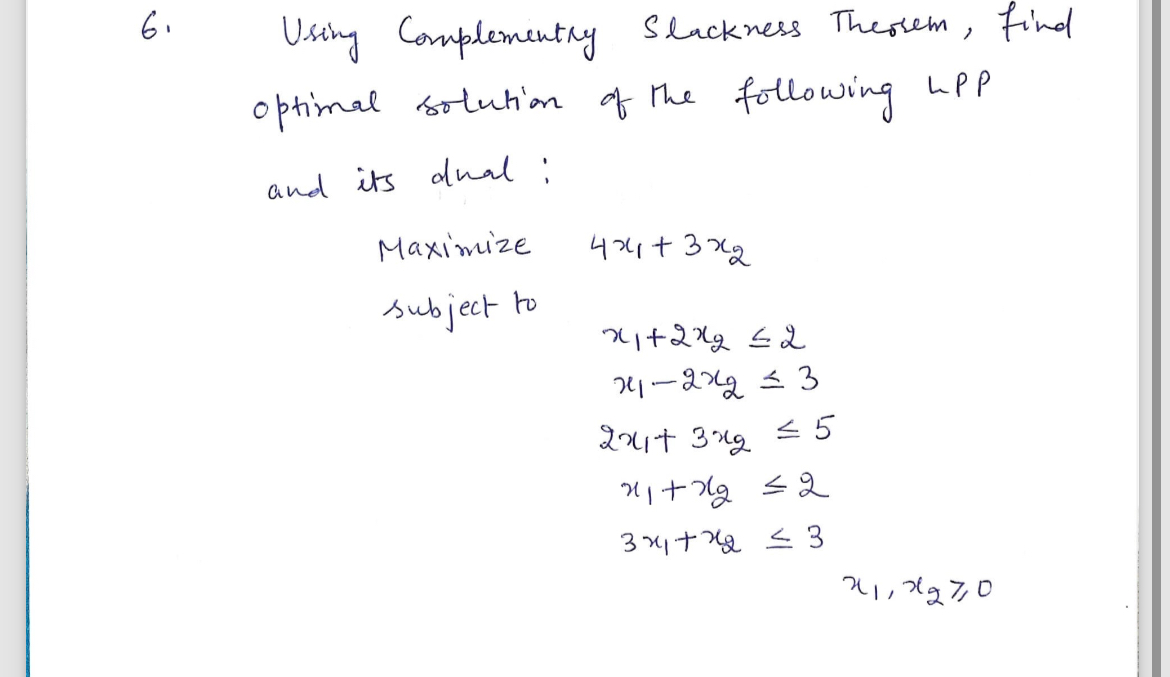 6. Using Complementry Slackness Theorem, find
optimal solution of the following LPP
and its dual :
Maximize 4x₁ + 3x₂
subject to
x₁ + 2x₂ ≤ 2
x₁ - 2x₂ ≤ 3
2x₁ + 3x₂ ≤ 5
x₁ + x₂ ≤ 2
3x₁ + x₂ ≤ 3
x₁, x₂ ≥ 0